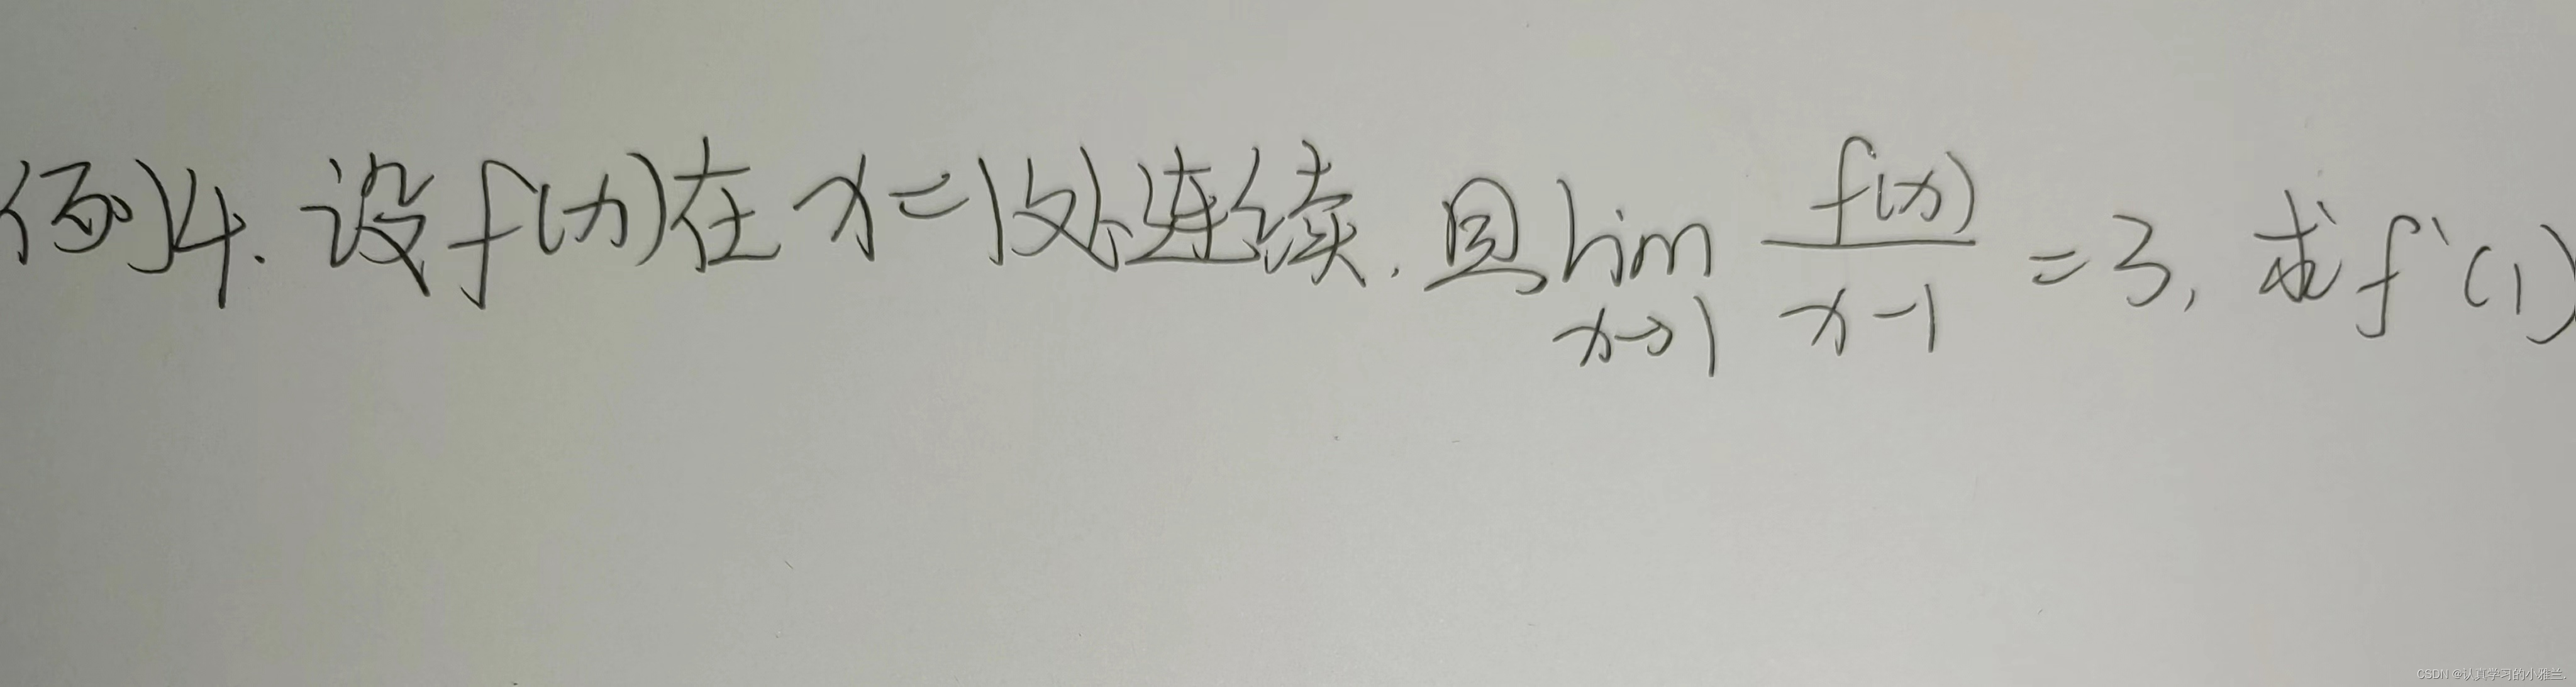 例4. 设f(x)在x=1处连续.且lim x→1 f(x)/x-1 =3, 求f'(1)
CSDN @认真学习的小雅兰.